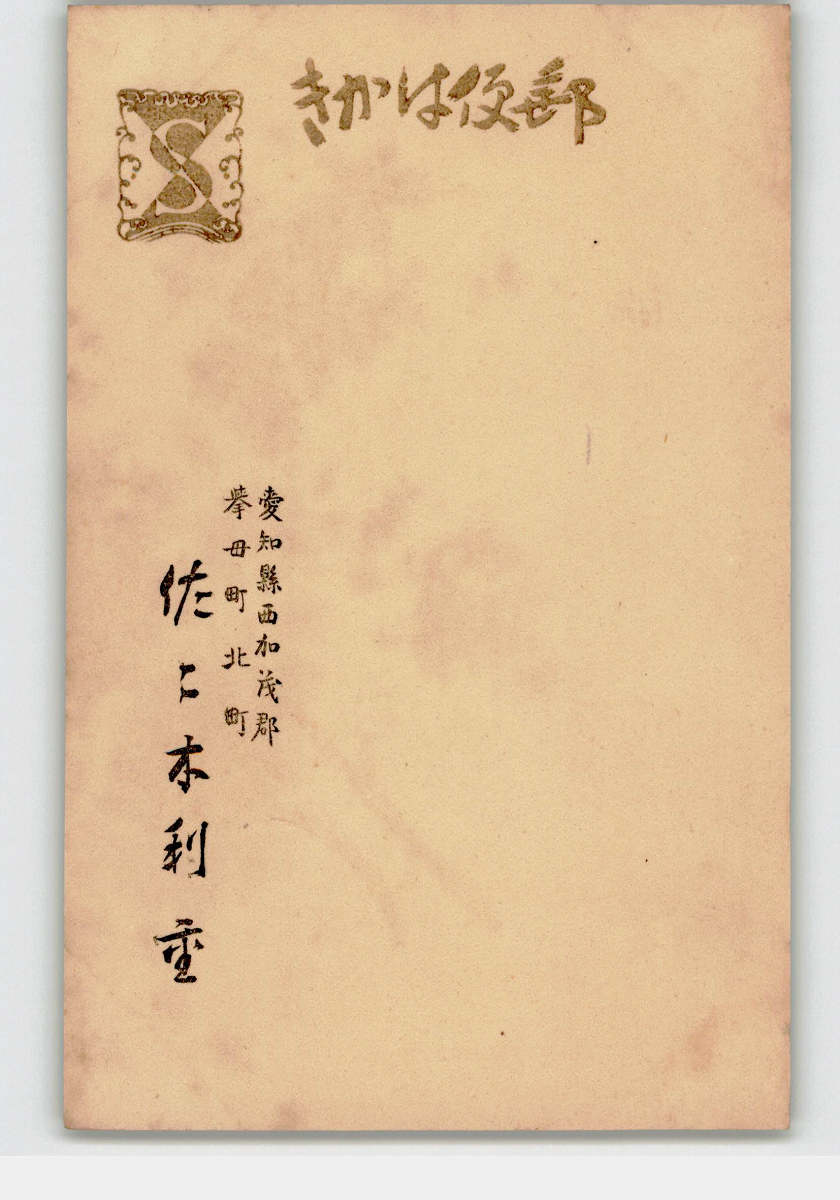 郵便はかき
S
愛知縣西加茂郡
擧母町北町
佐々木利重